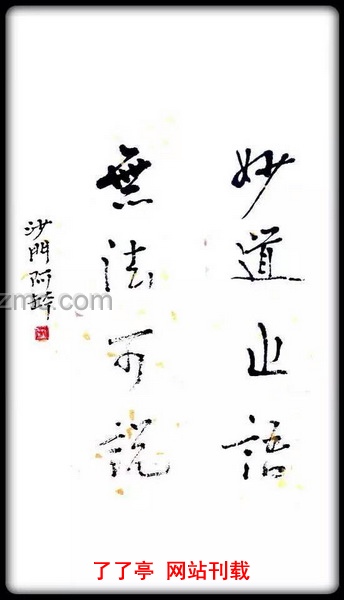 妙道止語
無法可說
沙門阿
zm
.com
了了亭 网站刊载